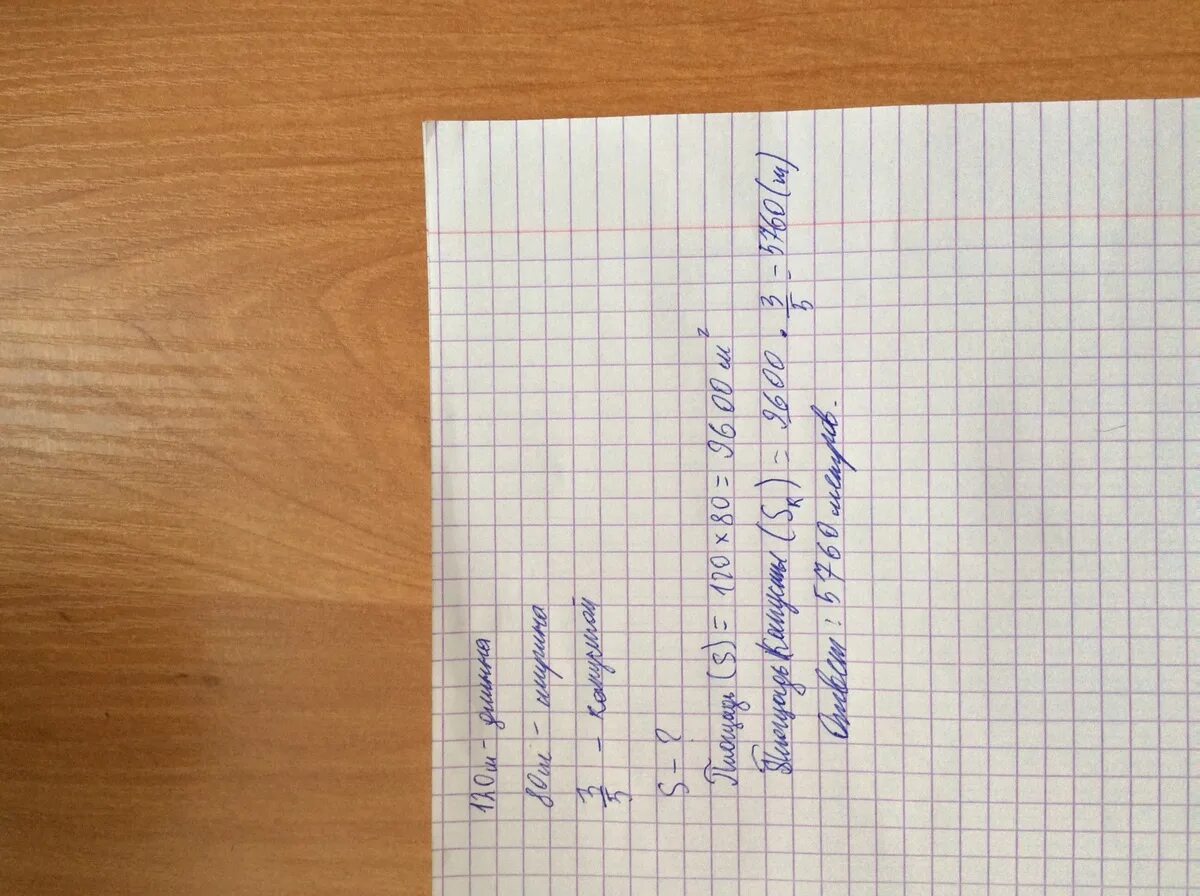 120м - длинна
80м - ширина
3/5 - капустой
S - ?
Площадь (S) = 120 × 80 = 9600 м²
Площадь Капусты (Sк) = 9600 · 3/5 = 5760 (м)
Ответ: 5760 метров.